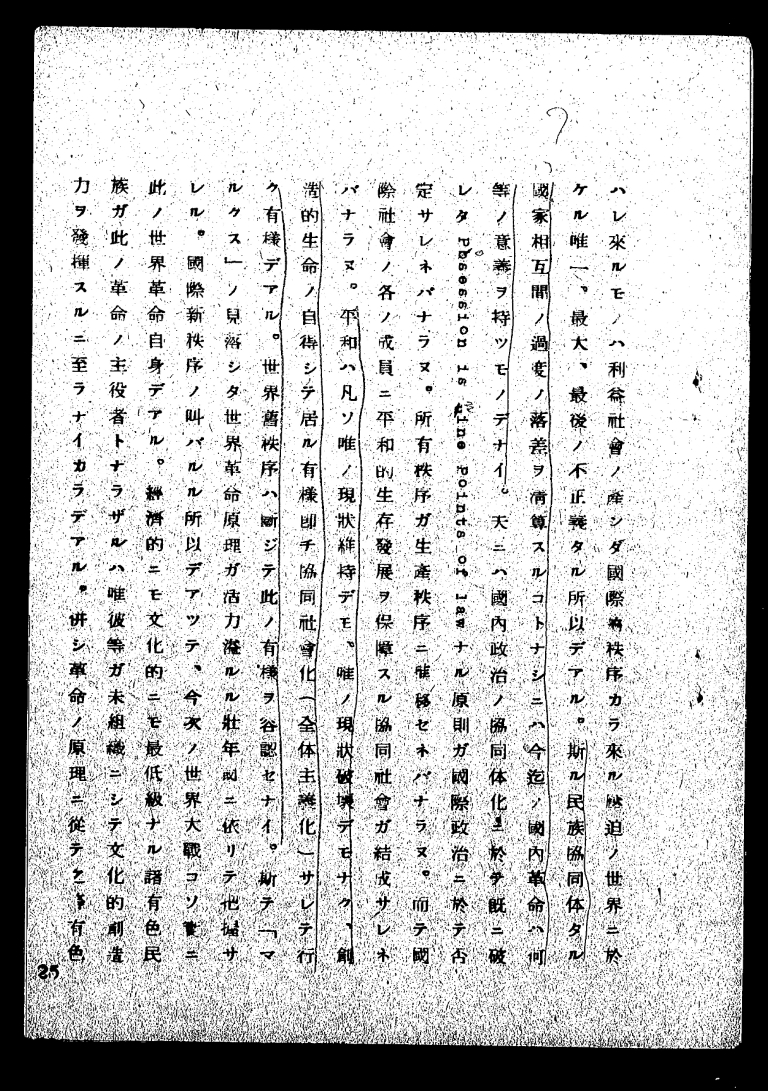 ハレ來ルモノハ利益社會ノ產ンダ國際舊秩序カラ來ル壓迫ノ世界ニ於
ケル唯一、最大、最後ノ不正義タル所以デアル。斯ル民族協同体タル
國家相互間ノ過度ノ落差ヲ淸算スルコトナシニハ今迄ノ國內革命ハ何
等ノ意義ヲ持ツモノデナイ。天ニハ國內政治ノ協同体化ニ於テ既ニ破
レタ Possession is nine points of law ナル原則ガ國際政治ニ於テ否
定サレネバナラヌ。所有秩序ガ生產秩序ニ推移セネバナラヌ。而テ國
際社會ノ各ノ成員ニ平和的生存發展ヲ保障スル協同社會ガ結成サレネ
バナラヌ。平和ハ凡ソ唯ノ現狀維持デモ、唯ノ現狀破壞デモナク、創
造的生命ノ自得シテ居ル有樣卽チ協同社會化(全体主義化)サレテ行
ク有樣デアル。世界舊秩序ハ斷ジテ此ノ有樣ヲ容認セナイ。斯テ「マ
ルクス」ノ見落シタ世界革命原理ガ活力溢ルル壯年國ニ依リテ把握サ
レル。國際新秩序ノ叫バルル所以デアツテ、今次ノ世界大戰コソ實ニ
此ノ世界革命自身デアル。經濟的ニモ文化的ニモ最低級ナル諸有色民
族ガ此ノ革命ノ主役者トナラザルハ唯彼等ガ未組織ニシテ文化的創造
力ヲ發揮スルニ至ラナイカラデアル。併シ革命ノ原理ニ從テ之等有色
25